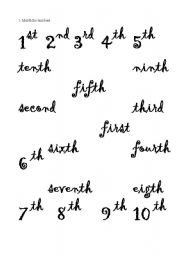 1st 2nd 3rd 4th 5th
tenth ninth
fifth
second third
first
6th sixth fourth
seventh eigth
7th 8th 9th 10th